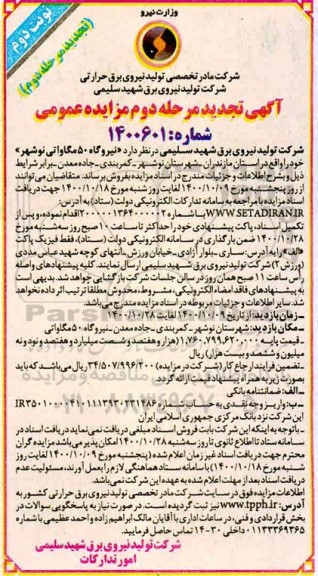 وزارت نیرو
نوبت دوم
(تجدید مرحله دوم)
شرکت مادر تخصصی تولید نیروی برق حرارتی
شرکت تولید نیروی برق شهید سلیمی
آگهی تجدید مرحله دوم مزایده عمومی
شماره: ۱۴۰۰۶۰۱
شرکت تولید نیروی برق شهید سلیمی در نظر دارد «نیروگاه ۵۰ مگاواتی نوشهر»
خود را واقع در استان مازندران - شهرستان نوشهر - کمربندی - جاده معدن - برابر شرایط
ذیل و بشرح اطلاعات و جزئیات مندرج در اسناد مزایده بفروش برساند. متقاضیان می توانند
از روز پنجشنبه مورخ ۱۴۰۰/۱۰/۰۹ لغایت روز شنبه مورخ ۱۴۰۰/۱۰/۱۸ جهت دریافت
اسناد مزایده با مراجعه به سامانه تدارکات الکترونیکی دولت (ستاد) به آدرس:
WWW.SETADIRAN.IR با شماره اقدام نموده، و پس از
تکمیل اسناد، پاکت پیشنهادی خود را حداکثر تا ساعت ۱۰ صبح روز سه شنبه مورخ
۱۴۰۰/۱۰/۲۸ ضمن بارگذاری در سامانه الکترونیکی دولت (ستاد)، فقط فیزیک پاکت
«الف» را به آدرس: ساری - بلوار آزادی - خیابان ورزش - انتهای کوچه شهید عباس مددی
(ورزش ۲) شرکت تولید نیروی برق شهید سلیمی ارسال نمایند. کلیه پیشنهادهای واصله
راس ساعت ۱۱ صبح همان روز در سالن جلسات شرکت بازگشایی خواهد شد. بدیهی است
به پیشنهادهای فاقد امضاء الکترونیکی، مشروط، مخدوش مطلقا ترتیب اثر داده نخواهد
شد. سایر اطلاعات و جزئیات مربوطه در اسناد مزایده مندرج می باشد.
- زمان بازدید: از تاریخ ۱۴۰۰/۱۰/۰۹ لغایت ۱۴۰۰/۱۰/۲۸
- مکان بازدید: شهرستان نوشهر - کمربندی - جاده معدن - نیروگاه ۵۰ مگاواتی
- قیمت پایه: ۱,۷۶۰,۷۹۹,۶۲۰,۰۰۰ (هزار و هفتصد و شصت میلیارد و هفتصد و نود و نه
میلیون و ششصد و بیست هزار) ریال
- تضمین فرایند ارجاع کار (شرکت در مزایده) ریال می باشد که باید
بصورت زیر به همراه پیشنهاد قیمت ارائه گردد.
- الف: ضمانتنامه بانکی
- ب: واریز وجه نقدی به حساب
این شرکت نزد بانک مرکزی جمهوری اسلامی ایران
- با توجه به اینکه این شرکت بابت فروش اسناد مبلغی دریافت نمی نماید دریافت اسناد در
سامانه ستاد تا اطلاع ثانوی تا روز سه شنبه ۱۴۰۰/۱۰/۲۸ امکان پذیر می باشد مزایده گران
محترم جهت دریافت اسناد غیر زمان اعلام شده (پنجشنبه مورخ ۱۴۰۰/۱۰/۰۹ لغایت روز
شنبه مورخ ۱۴۰۰/۱۰/۱۸) با سامانه ستاد هماهنگی لازم را بعمل آورند، مسئولیت عدم
دریافت اسناد بعد از مهلت اعلام شده به عهده این شرکت نمی باشد.
اطلاعات مزایده فوق در سایت شرکت مادر تخصصی تولید نیروی برق حرارتی کشور به
آدرس: www.tpph.ir نیز ثبت گردیده است. در صورت نیاز به پاسخگویی سوالات در
بخش قراردادی و فنی، در ساعات اداری با آقایان مالک ابراهیم زاده و احمد عظیمی با شماره
۰۱۱۳۳۳۶۹۳۶۵ داخلی ۳۰-۱۴ تماس حاصل فرمایید.
شرکت تولید نیروی برق شهید سلیمی
امور تدارکات